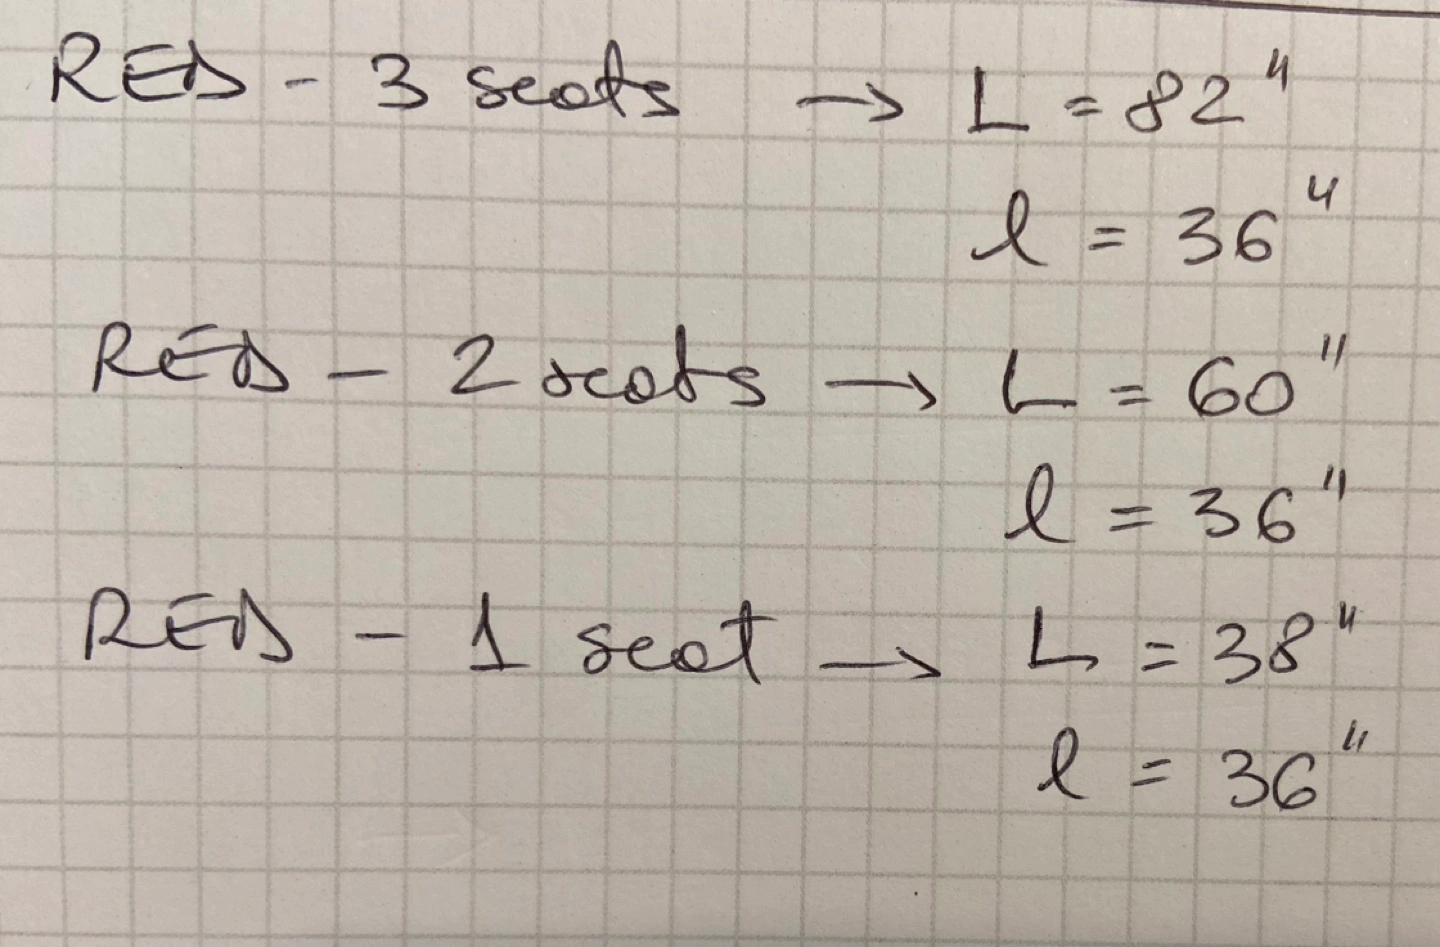 RED - 3 seats → L = 82"
l = 36"
RED - 2 seats → L = 60"
l = 36"
RED - 1 seat → L = 38"
l = 36"